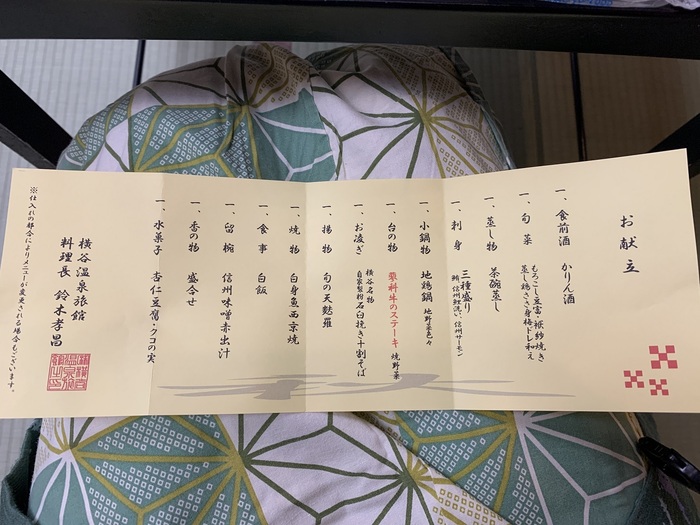 お献立
一、食前酒 かりん酒
一、旬菜 もろこし豆富・袱紗焼き
蒸し鶏ささ身梅ドレ和え
一、蒸し物 茶碗蒸し
一、刺身 三種盛り
鯛 信州鯉洗い、信州サーモン
一、小鍋物 地鶏鍋 地野菜色々
一、台の物 蓼科牛のステーキ 焼野菜
一、お凌ぎ 横谷名物
自家製粉石臼挽き十割そば
一、揚物 旬の天麩羅
一、焼物 白身魚西京焼
一、食事 白飯
一、留椀 信州味噌赤出汁
一、香の物 盛合せ
一、水菓子 杏仁豆腐・クコの実
横谷温泉旅館
料理長 鈴木孝昌
※仕入れの都合によりメニューが変更される場合もございます。